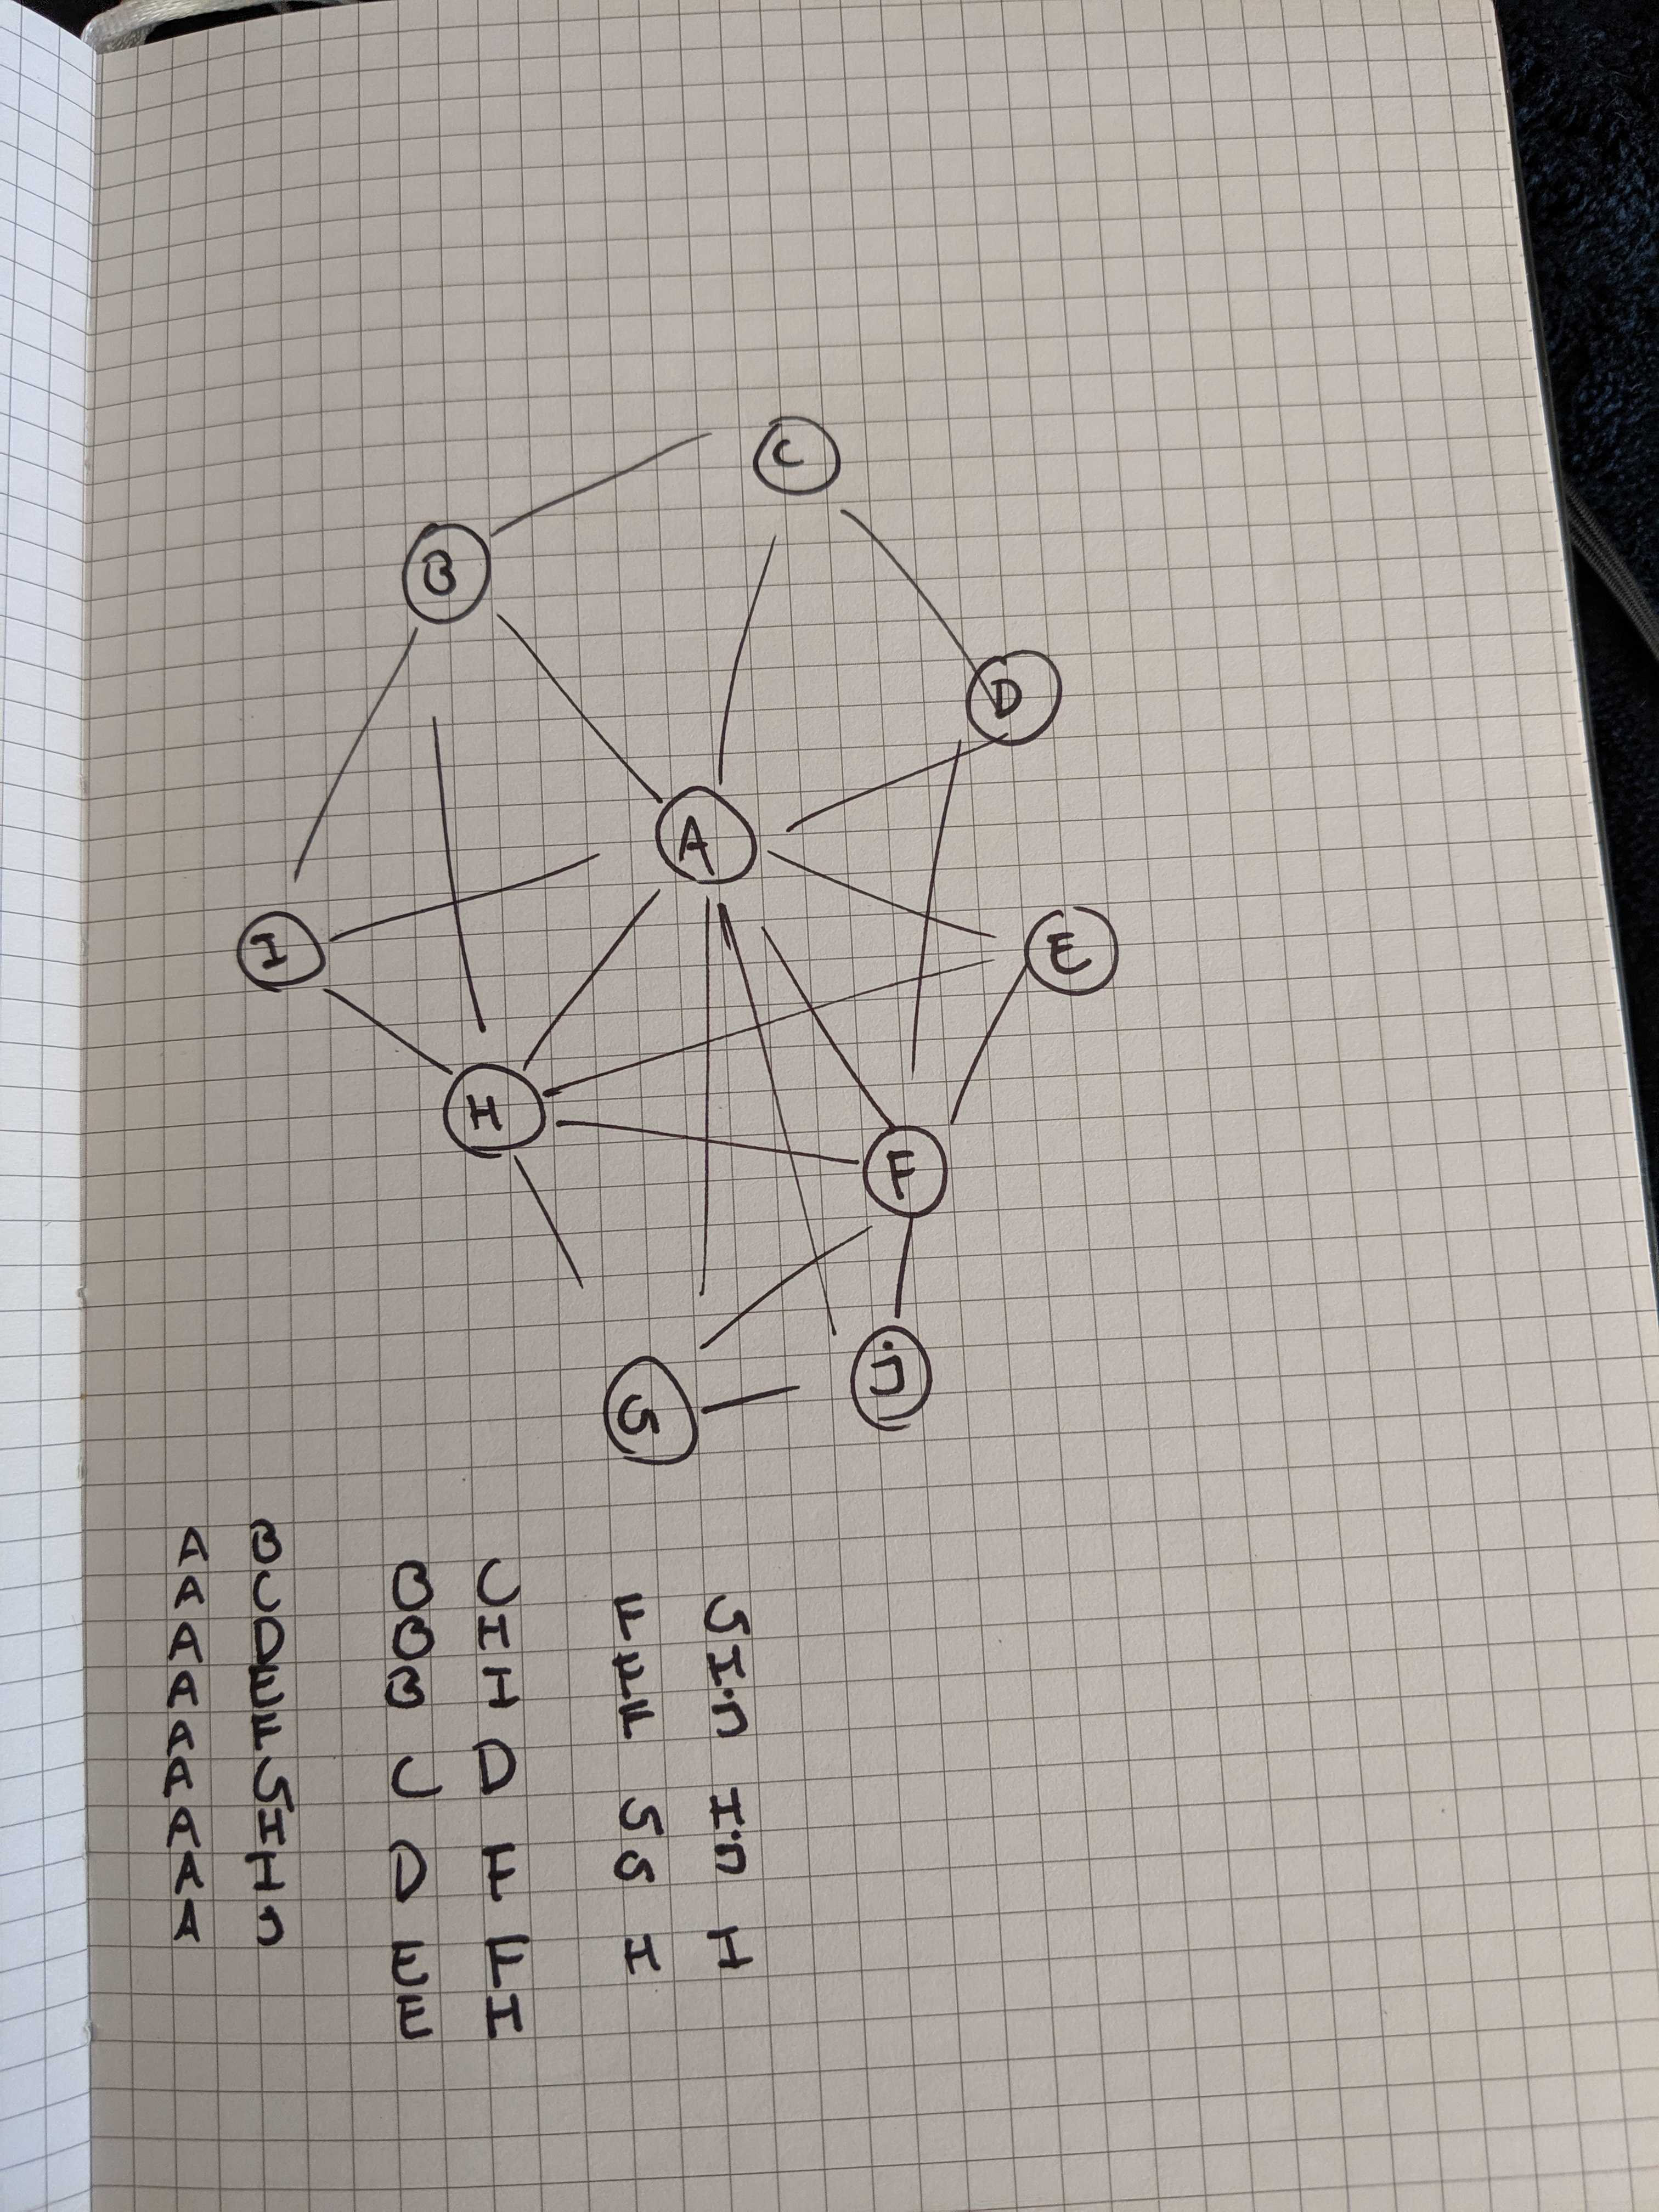 C
B
D
A
I
E
H
F
J
G
A B
A C
A D
A E
A F
A G
A H
A I
A J
B C
B H
B I
C D
D F
E F
E H
F G
F H
F J
G H
G J
H I